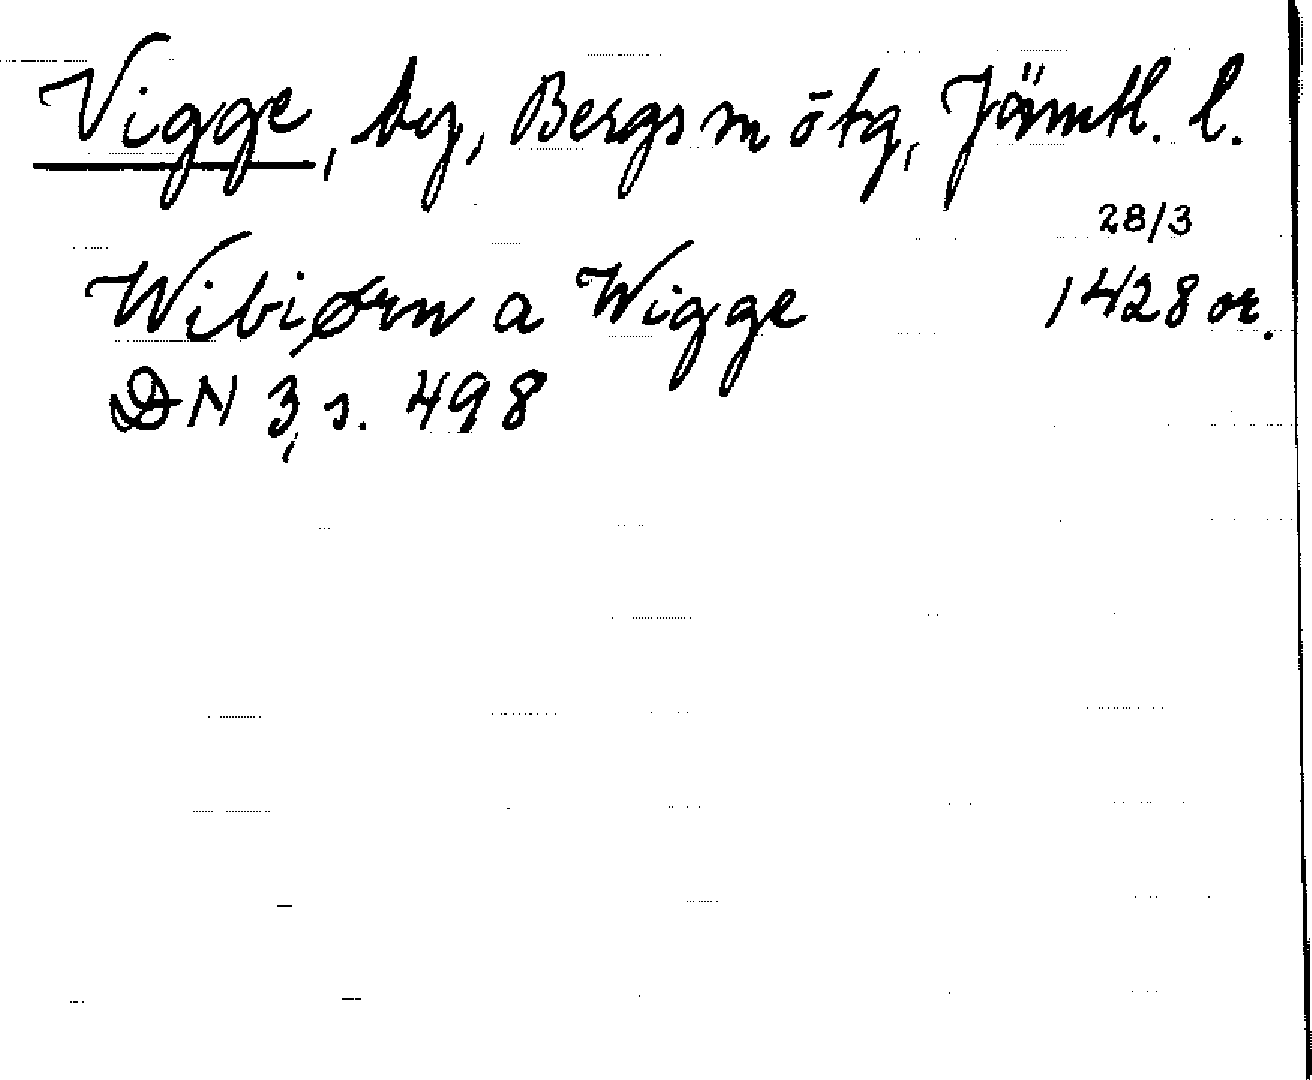 Vigge, by, Bergs sn ötg, Jämtl. l.
28/3
Wibiørn a Wigge 1428 or.
DN 3, s. 498